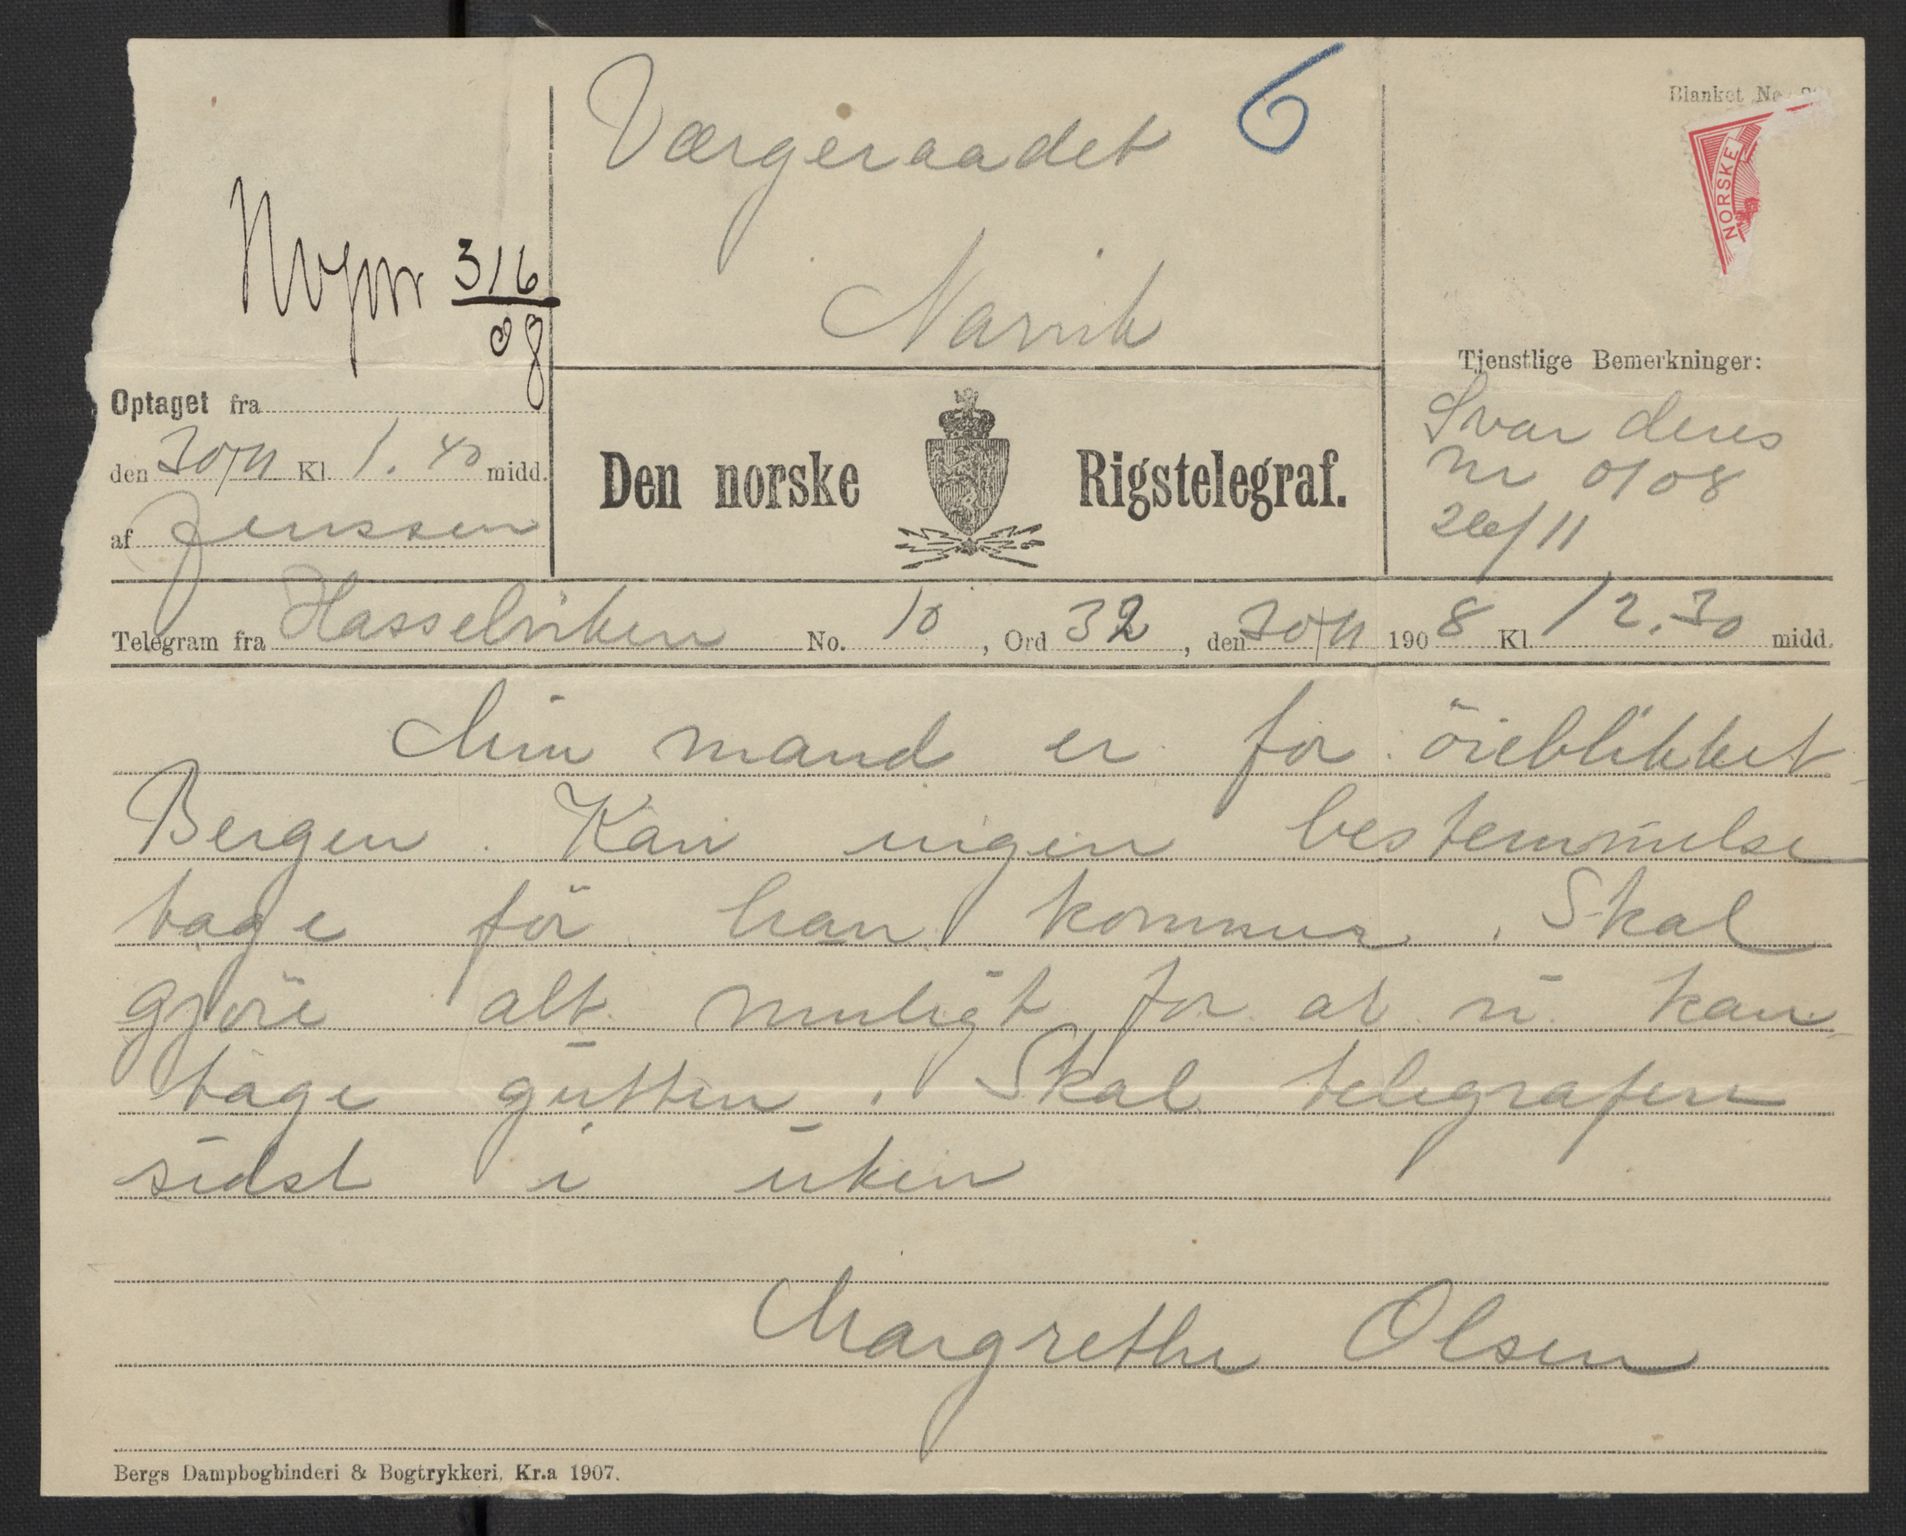 Værgeraadet 6
Narvik
Blanket No.
NORSKE
316
08
Optaget fra
den 30/11 Kl. 1.40 midd.
af Jenssen
Den norske Rigstelegraf.
Tjenstlige Bemerkninger:
Svar deres
nr 0/08
26/11
Telegram fra Hasselviken No. 10, Ord 32, den 30/11 1908 Kl. 12.30 midd.
Min mand er for öieblikket
Bergen. Kan ingen bestemmelse
tage för han kommer. Skal
gjöre alt muligt for at vi kan
tage gutten. Skal telegrafere
sidst i uken
Margrethe Olsen
Bergs Dampbogbinderi & Bogtrykkeri, Kr.a 1907.